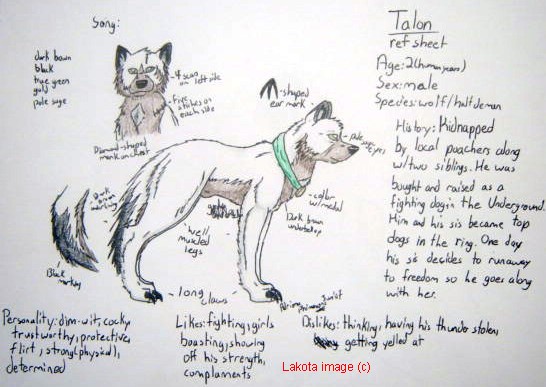 Song:
dark brown
black
true green
gold
pale sage
4 scars
on left side
Five
stitches on
each side
Diamond-shaped
mark on chest
Λ-shaped
ear mark
pale
sage eyes
collar
w/medal
Dark brown
underbelly
Dark
brown
marking
Well
muscled
legs
Black
marking
long
claws
Talon
ref sheet
Age: 2 (human years)
Sex: male
Species: wolf/half demon
History: Kidnapped
by local poachers along
w/two siblings. He was
bought and raised as a
fighting dog in the Underground.
Him and his sis became top
dogs in the ring. One day
his sis decides to runaway
to freedom so he goes along
with her.
Personality: dim-wit, cocky,
trustworthy, protective,
flirt, strong (physical),
determined
Likes: fighting, girls
boasting, showing
off his strength,
complaments
Dislikes: thinking, having his thunder stolen,
getting yelled at
Lakota image (c)